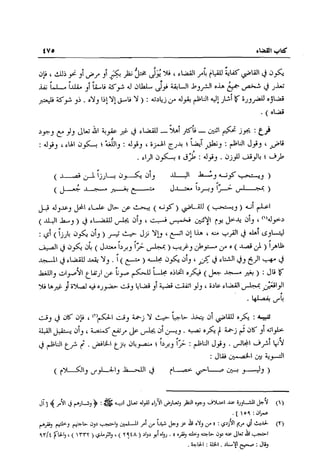 كتاب القضاء ٤٧٥
يكون في القاضي كفاية للقيام بأمر القضاء ، فلا يُولى مختلُّ نظر بكِبَرٍ أو مرض أو نحو ذلك ، فإن
تعذر في شخص جميع هذه الشروط السابقة فولى سلطان له شوكة فاسقاً أو مقلداً مسلماً نفذ
قضاؤه للضرورة كما أشار إليه الناظم بقوله من زيادته : ( لا فاسق إلا إذا ولاه . ذو شوكة فليعتبر
قضاه ) .
فرع : يجوز تحكيم اثنين فأكثر أهلاً للقضاء في غير عقوبة الله تعالى ولو مع وجود
قاضٍ ، وقول الناظم : ونطق أيضاً ؛ بدرج الهمزة ، وقوله : واللغهْ ؛ بسكون الهاء ، وقوله :
طرف ؛ بالوقف للوزن . وقوله : طرْق ؛ بسكون الراء .
( ويستحب كونه وسْط البلد وأن يكون بارزاً لمن قصد )
( بمجلس حرّاً وبرداً معتدل متسع بغير مسجد جُعل )
اعلم أنه ( ويستحب ) للقاضي ( كونه ) يبحث عن حال علماء المحل وعدوله قبل
دخوله(١) ، وأن يدخل يوم الإثنين فخميس فسبت ، وأن يجلس للقضاء في ( وسط البلد )
ليتساوى أهله في القرب منه ، هذا إن اتسع ، وإلا نزل حيث تيسر ( وأن يكون بارزاً ) أي :
ظاهراً ( لمن قصد ) ه من مستوطن وغريب ( بمجلس حرّاً وبرداً معتدل ) بأن يكون في الصيف
في مهب الريح وفي الشتاء في كِنٍّ ، وأن يكون بمجلسه ( متسع ) اً . ولا يقعد للقضاء في المسجد
كما قال : ( بغير مسجد جعل ) فيكره اتخاذه مجلساً للحكم صوناً عن ارتفاع الأصوات واللغط
الواقعَين بمجلس القضاء عادة ، ولو اتفقت قضية أو قضايا وقت حضوره فيه لصلاة أو غيرها فلا
بأس بفصلها .
تنبيه : يكره للقاضي أن يتخذ حاجباً حيث لا زحمة وقت الحكم(٢) ، فإن كان في وقت
خلواته أو كان ثَم زحمة لم يكره نصبه . ويسن أن يجلس على مرتفع كمنصة ، وأن يستقبل القبلة
لأنها أشرف المجالس . وقول الناظم : حرّاً وبرداً ؛ منصوبان بنزع الخافض . ثم شرع الناظم في
التسوية بين الخصمين فقال :
( وليسوِ بين صاحبي خصام في اللحظ والجلوس والكلام )
(١) لأجل المشاورة عند اختلاف وجوه النظر وتعارض الآراء لقوله تعالى لنبيه ﷺ : ﴿ وشاورهم في الأمر ﴾ [آل
عمران : ١٥٩ ] .
(٢) لحديث أبي مريم الأزدي : « من ولاه الله عز وجل شيئاً من أمر المسلمين واحتجب دون حاجتهم وخلتهم وفقرهم
احتجب الله تعالى عنه دون حاجته وخلته وفقره » . رواه أبو داود ( ٢٩٤٨ ) ، والترمذي ( ١٣٣٢ ) ، والحاكم ٩٣/٤
وقال : صحيح الإسناد . الخلة : الحاجة .